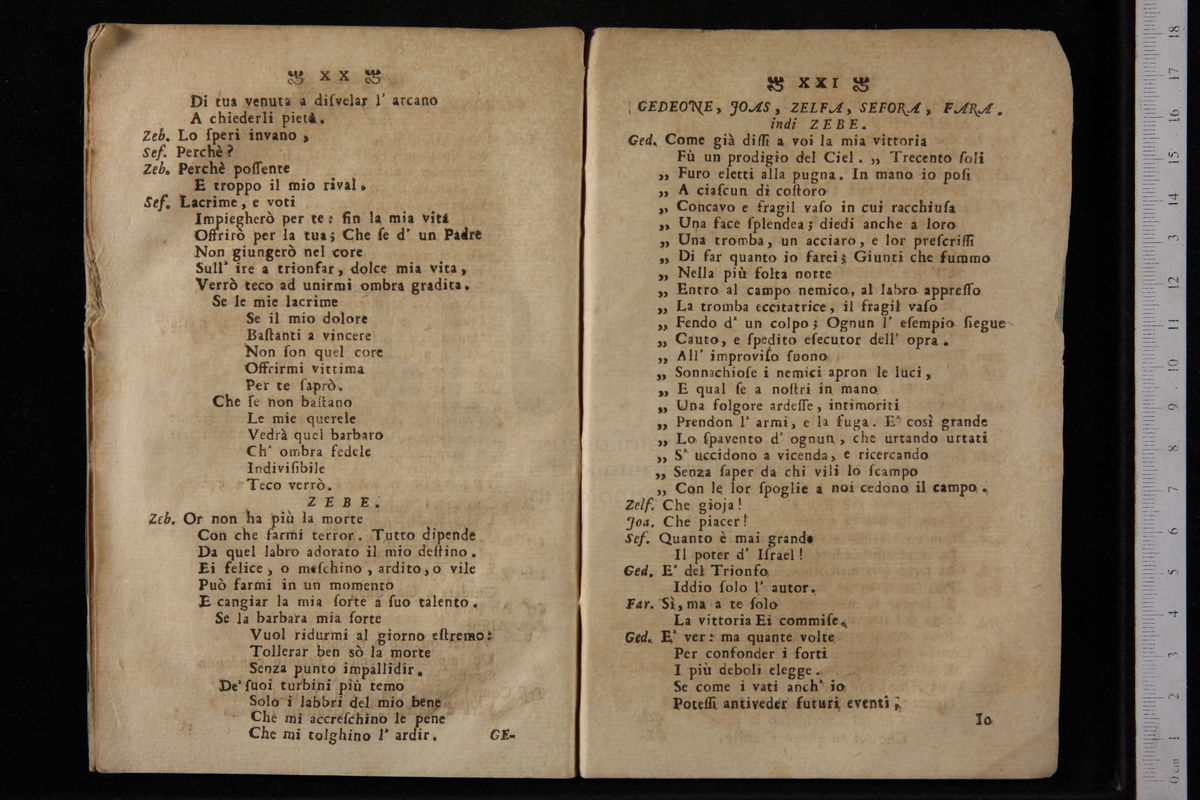 XX
Di tua venuta a diſvelar l' arcano
A chiederli pietà.
Zeb. Lo ſperi invano,
Sef. Perchè?
Zeb. Perchè poſſente
E troppo il mio rival.
Sef. Lacrime, e voti
Impiegherò per te: fin la mia vita
Offrirò per la tua; Che ſe d' un Padre
Non giungerò nel core
Sull' ire a trionfar, dolce mia vita,
Verrò teco ad unirmi ombra gradita.
Se le mie lacrime
Se il mio dolore
Baſtanti a vincere
Non ſon quel core
Offrirmi vittima
Per te ſaprò.
Che ſe non baſtano
Le mie querele
Vedrà quel barbaro
Ch' ombra fedele
Indiviſibile
Teco verrò.
ZEBE.
Zeb. Or non ha più la morte
Con che farmi terror. Tutto dipende
Da quel labro adorato il mio deſtino.
Ei felice, o meſchino, ardito, o vile
Può farmi in un momento
E cangiar la mia ſorte a ſuo talento.
Se la barbara mia ſorte
Vuol ridurmi al giorno eſtremo:
Tollerar ben sò la morte
Senza punto impallidir.
De' ſuoi turbini più temo
Solo i labbri del mio bene
Che mi accreſchino le pene
Che mi tolghino l' ardir.
GE-
XXI
GEDEONE, JOAS, ZELFA, SEFORA, FARA.
indi ZEBE.
Ged. Come già diſſi a voi la mia vittoria
Fù un prodigio del Ciel. „ Trecento ſoli
„ Furo eletti alla pugna. In mano io poſi
„ A ciaſcun di coſtoro
„ Concavo e fragil vaſo in cui racchiuſa
„ Una face ſplendea; diedi anche a loro
„ Una tromba, un acciaro, e lor preſcriſſi
„ Di far quanto io farei; Giunti che fummo
„ Nella più folta notte
„ Entro al campo nemico, al labro appreſſo
„ La tromba eccitatrice, il fragil vaſo
„ Fendo d' un colpo; Ognun l' eſempio ſiegue
„ Cauto, e ſpedito eſecutor dell' opra.
„ All' improviſo ſuono
„ Sonnachioſe i nemici apron le luci,
„ E qual ſe a noſtri in mano
„ Una folgore ardeſſe, intimoriti
„ Prendon l' armi, e la fuga. E' così grande
„ Lo ſpavento d' ognun, che urtando urtati
„ S' uccidono a vicenda, e ricercando
„ Senza ſaper da chi vili lo ſcampo
„ Con le lor ſpoglie a noi cedono il campo.
Zelf. Che gioja!
Joa. Che piacer!
Sef. Quanto è mai grande
Il poter d' Iſrael!
Ged. E' del Trionfo
Iddio ſolo l' autor.
Far. Sì, ma a te ſolo
La vittoria Ei commiſe.
Ged. E' ver: ma quante volte
Per confonder i forti
I più deboli elegge.
Se come i vati anch' io
Poteſſi antiveder futuri eventi,
Io
0 cm 1 2 3 4 5 6 7 8 9 10 11 12 13 14 15 16 17 18